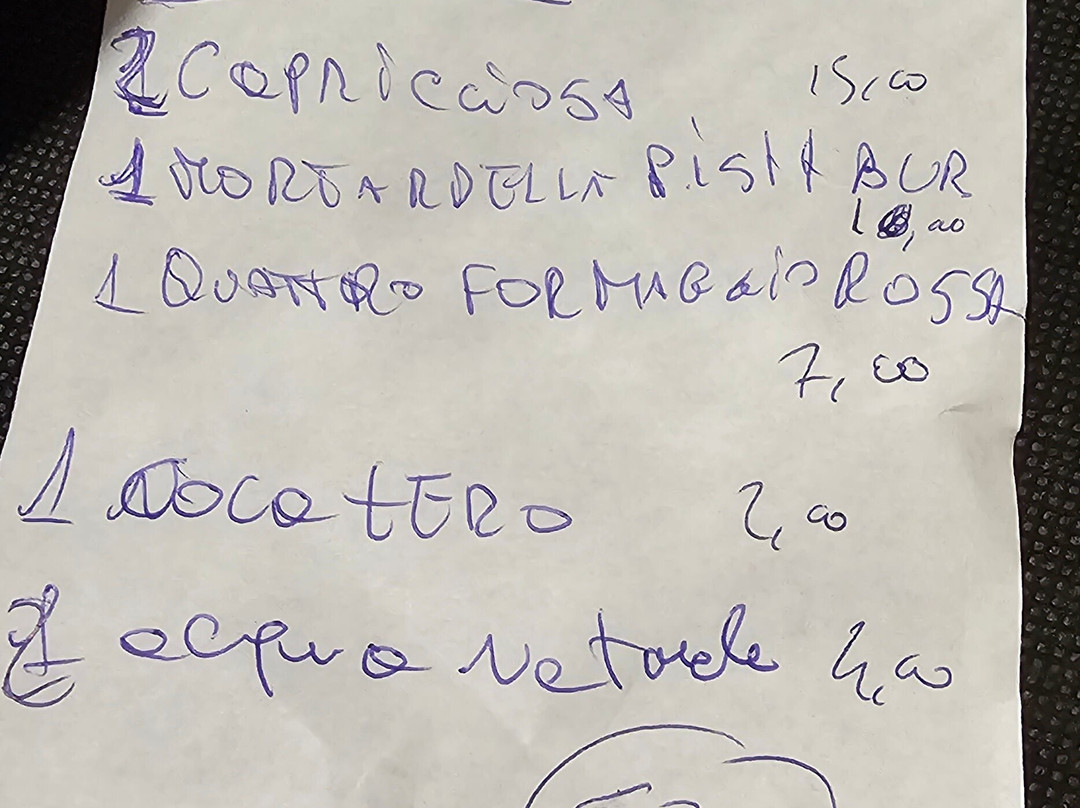 2 CAPRICCIOSA 15,00
1 MORTARDELLA PISTA BUR
10,00
1 QUATTRO FORMAGGIO ROSSA
7,00
1 COCA ZERO 2,00
acqua Naturale 2,00